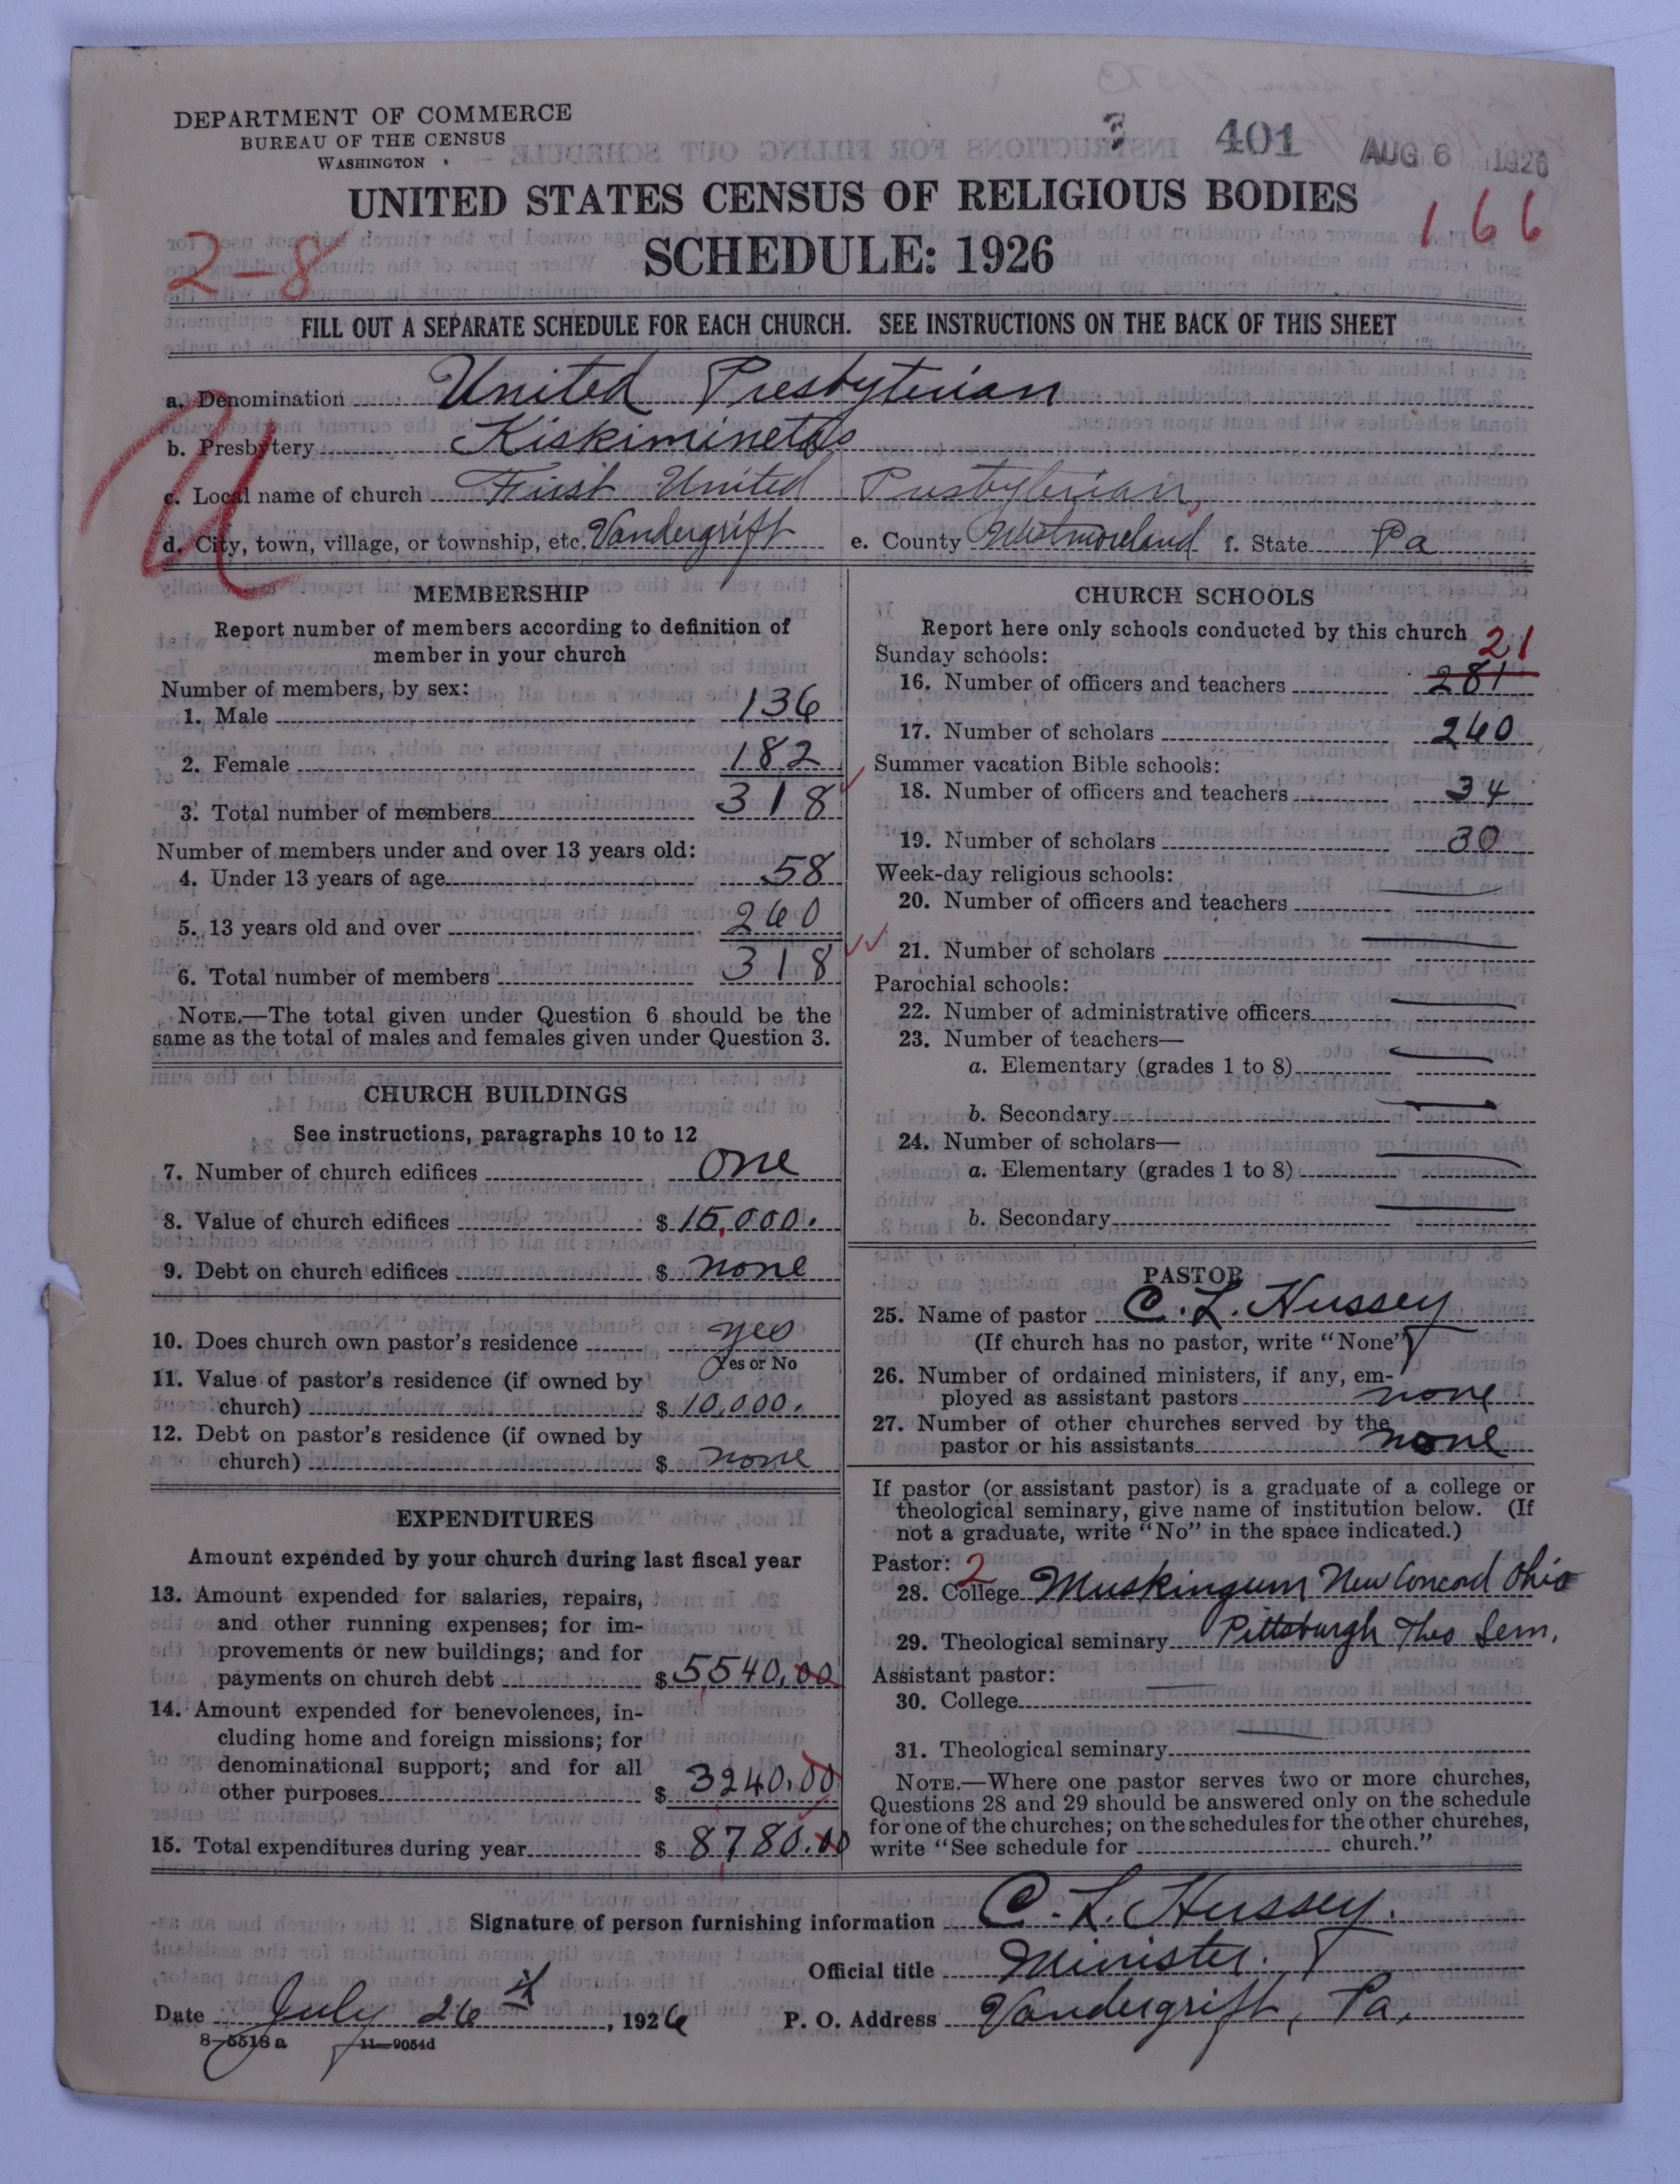 DEPARTMENT OF COMMERCE
BUREAU OF THE CENSUS
WASHINGTON
401
AUG 6 1926
UNITED STATES CENSUS OF RELIGIOUS BODIES
166
2-8
SCHEDULE: 1926
FILL OUT A SEPARATE SCHEDULE FOR EACH CHURCH. SEE INSTRUCTIONS ON THE BACK OF THIS SHEET
U
a. Denomination United Presbyterian
b. Presbytery Kiskiminetas
c. Local name of church First United Presbyterian
d. City, town, village, or township, etc. Vandergrift e. County Westmoreland f. State Pa
MEMBERSHIP
Report number of members according to definition of
member in your church
Number of members, by sex:
1. Male 136
2. Female 182
3. Total number of members 318
Number of members under and over 13 years old:
4. Under 13 years of age 58
5. 13 years old and over 260
6. Total number of members 318
NOTE.—The total given under Question 6 should be the
same as the total of males and females given under Question 3.
CHURCH BUILDINGS
See instructions, paragraphs 10 to 12
7. Number of church edifices one
8. Value of church edifices $ 15,000.
9. Debt on church edifices $ none
10. Does church own pastor's residence yes
Yes or No
11. Value of pastor's residence (if owned by
church) $ 10,000.
12. Debt on pastor's residence (if owned by
church) $ none
EXPENDITURES
Amount expended by your church during last fiscal year
13. Amount expended for salaries, repairs,
and other running expenses; for im-
provements or new buildings; and for
payments on church debt $ 5540.00
14. Amount expended for benevolences, in-
cluding home and foreign missions; for
denominational support; and for all
other purposes $ 3240.00
15. Total expenditures during year $ 8780.00
CHURCH SCHOOLS
Report here only schools conducted by this church
Sunday schools: 21
16. Number of officers and teachers 281
17. Number of scholars 260
Summer vacation Bible schools:
18. Number of officers and teachers 34
19. Number of scholars 30
Week-day religious schools:
20. Number of officers and teachers
21. Number of scholars
Parochial schools:
22. Number of administrative officers
23. Number of teachers—
a. Elementary (grades 1 to 8)
b. Secondary
24. Number of scholars—
a. Elementary (grades 1 to 8)
b. Secondary
PASTOR
25. Name of pastor C. L. Hussey
(If church has no pastor, write "None")
26. Number of ordained ministers, if any, em-
ployed as assistant pastors none
27. Number of other churches served by the
pastor or his assistants none
If pastor (or assistant pastor) is a graduate of a college or
theological seminary, give name of institution below. (If
not a graduate, write "No" in the space indicated.)
Pastor: 2
28. College Muskingum New Concord Ohio
29. Theological seminary Pittsburgh Theo Sem.
Assistant pastor:
30. College
31. Theological seminary
NOTE.—Where one pastor serves two or more churches,
Questions 28 and 29 should be answered only on the schedule
for one of the churches; on the schedules for the other churches,
write "See schedule for church."
Signature of person furnishing information C. L. Hussey.
Official title Minister.
Date July 26th, 1926 P. O. Address Vandergrift, Pa.
8-5518 a 11-9054d